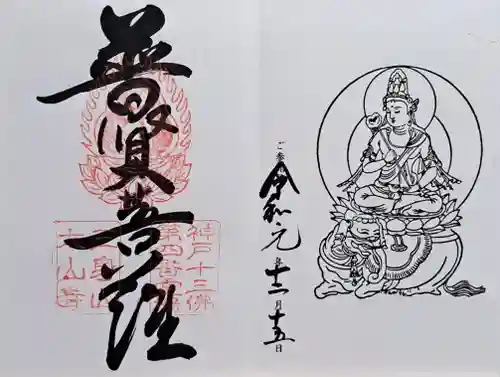 普賢菩薩
神戸十三佛
第四番
太山寺
令和元
年十二月十五日